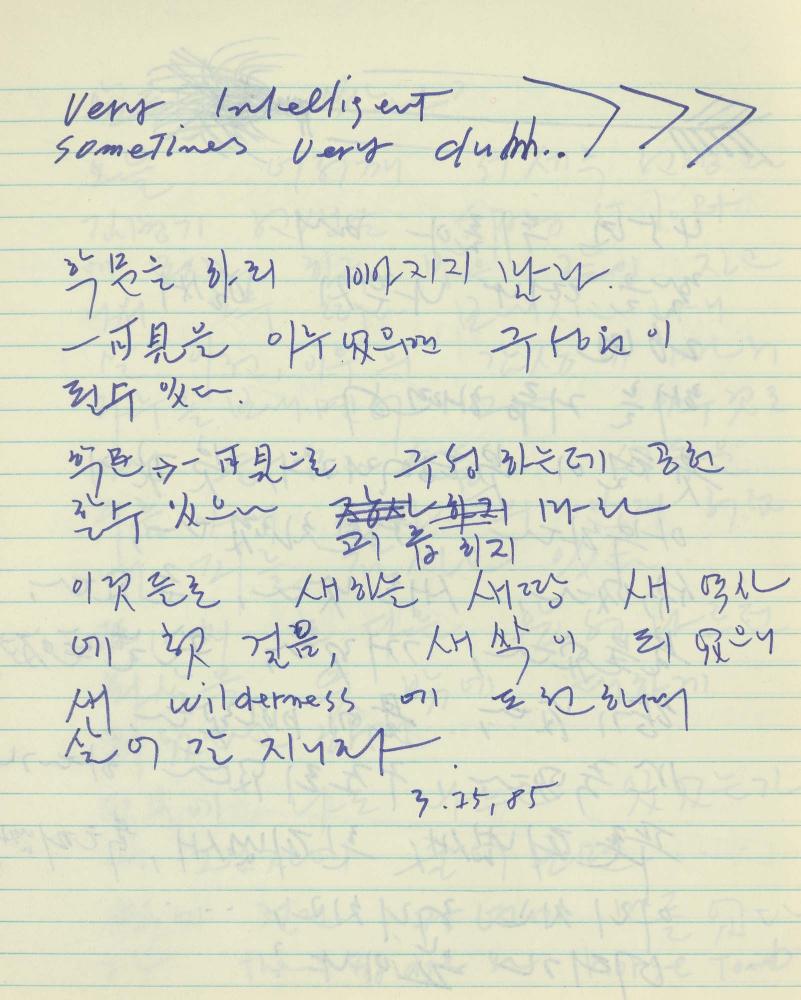 Very Intelligent
sometimes very dumb..
학문을 하되 미아지지 난다.
一可見을 이루었으면 구성원이
될수 있다.
학문 → 一可見으로 구성하는데 공헌
할수 있으나 하지 마라
괴츱하지
이것들로 새하늘 새땅 새 역사
에 첫 걸음, 새싹이 되었으니
새 wilderness 에 도전하며
살어 갈 지니라.
3.25,85